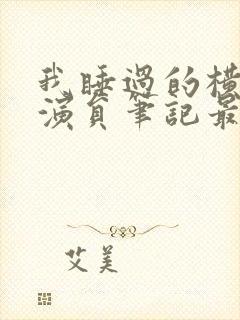 我睡過的橫
演員筆記最
艾美